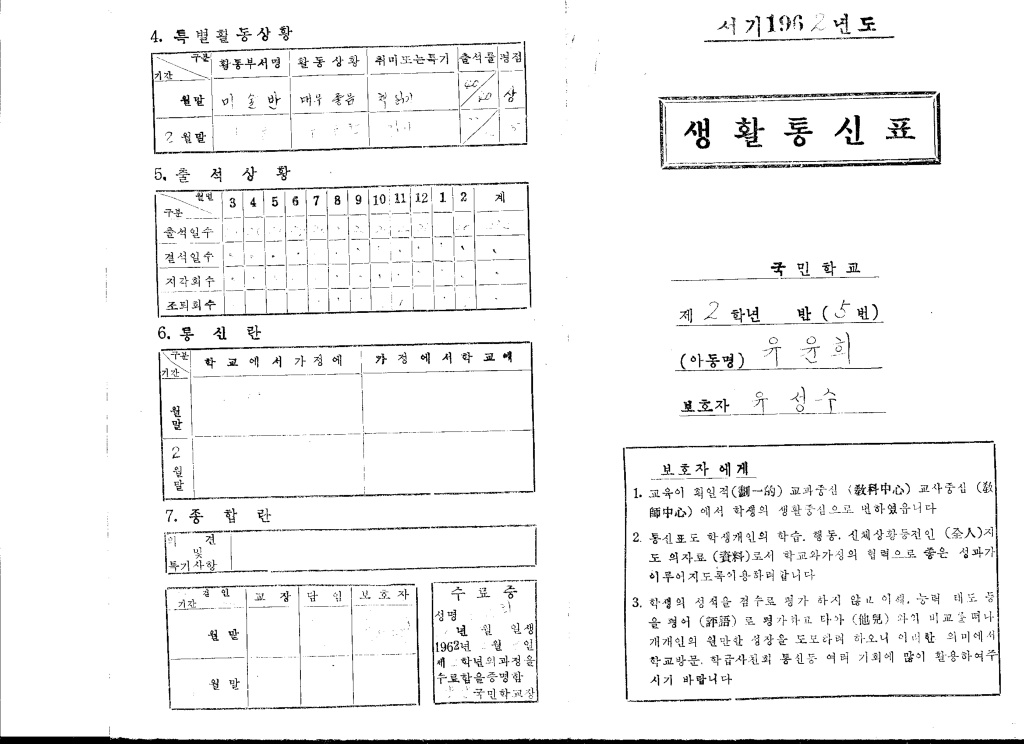 4. 특별활동상황
구분
기간
활동부서명 활동상황 취미또는특기 출석률 평점
월말 미술반 매우 좋음 책읽기 40/40 상
2월말
5. 출석상황
월별
구분
3 4 5 6 7 8 9 10 11 12 1 2 계
출석일수
결석일수
지각회수
조퇴회수
6. 통신란
구분
기간
학교에서가정에 가정에서학교에
월말
2월말
7. 종합란
의견
및
특기사항
검인
기간
교장 담임 보호자
월말
월말
수료증
성명 희
년 월 일생
1962년 월 일
제 학년의과정을
수료함을증명함
국민학교장
서기1962년도
생활통신표
국민학교
제 2 학년 반 (5번)
(아동명) 유윤희
보호자 유성수
보호자에게
1. 교육이 획일적(劃一的) 교과중심 (敎科中心) 교사중심 (敎
師中心) 에서 학생의 생활중심으로 변하였읍니다
2. 통신표도 학생개인의 학습. 행동. 신체상황등전인 (全人)지
도의자료 (資料)로서 학교와가정의 협력으로 좋은 성과가
이루어지도록이용하려합니다
3. 학생의 성적을 점수로 평가 하지 않고 이해, 능력 태도 등
을 평어 (評語) 로 평가하고 타아 (他兒) 와의 비교를떠나
개개인의 원만한 성장을 도모하려 하오니 이러한 의미에서
학교방문. 학급사친회 통신등 여러 기회에 많이 활용하여주
시기 바랍니다